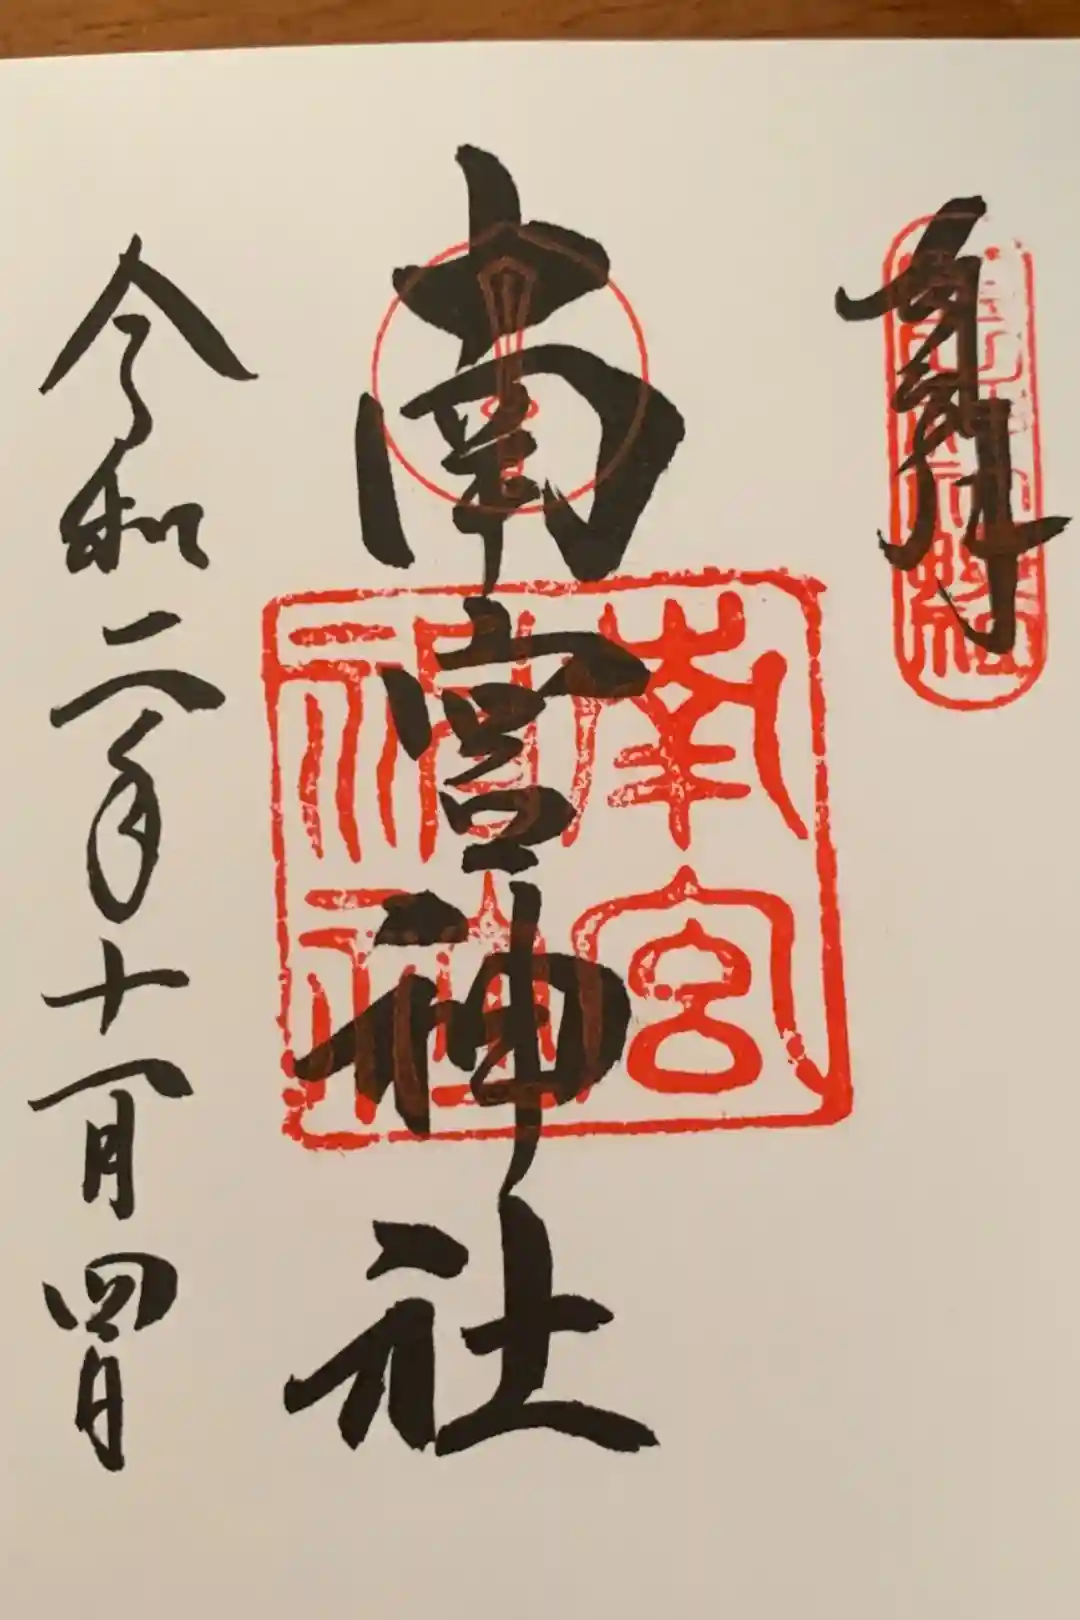 奉拝
南宮神社
南宮
神社
令和二年十一月四日